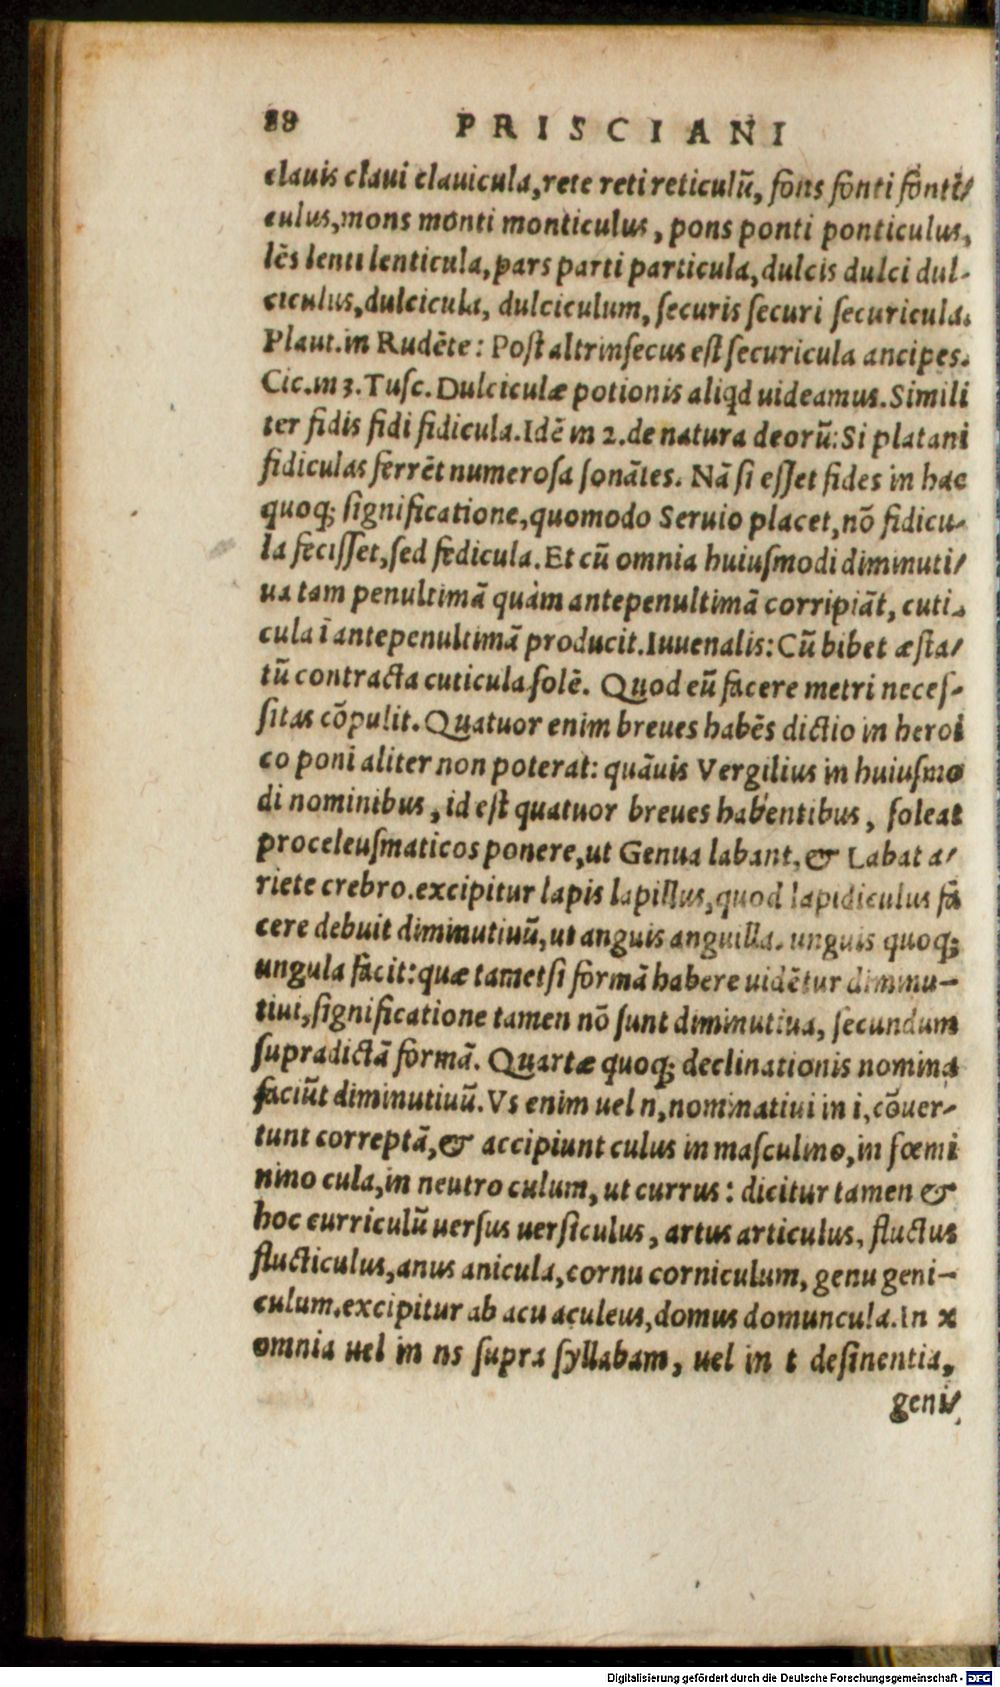 88 PRISCIANI
clauis claui clauicula, rete reti reticulũ, fons fonti fonti/
culus, mons monti monticulus, pons ponti ponticulus,
lẽs lenti lenticula, pars parti particula, dulcis dulci dul-
ciculus, dulcicula, dulciculum, ſecuris ſecuri ſecuricula.
Plaut. in Rudẽte: Poſt altrinſecus eſt ſecuricula ancipes.
Cic. in 3. Tuſc. Dulciculæ potionis aliqd uideamus. Simili
ter fidis fidi fidicula. Idẽ in 2. de natura deorũ: Si platani
fidiculas ferrẽt numeroſa ſonãtes. Nã ſi eſſet fides in hac
quoq; ſignificatione, quomodo Seruio placet, nõ fidicu-
la feciſſet, ſed fedicula. Et cũ omnia huiuſmodi diminuti/
ua tam penultimã quàm antepenultimã corripiãt, cuti-
cula ĩ antepenultimã producit. Iuuenalis: Cũ bibet æſta/
tũ contracta cuticula ſolẽ. Quod eũ facere metri neceſ-
ſitas cõpulit. Quatuor enim breues habẽs dictio in heroi
co poni aliter non poterat: quãuis Vergilius in huiuſmo
di nominibus, id eſt quatuor breues habentibus, ſoleat
proceleuſmaticos ponere, ut Genua labant, & Labat a/
riete crebro. excipitur lapis lapillus, quod lapidiculus fa
cere debuit diminutiuũ, ut anguis anguilla. unguis quoq;
ungula facit: quæ tametſi formã habere uidẽtur diminu-
tiui, ſignificatione tamen nõ ſunt diminutiua, ſecundum
ſupradictã formã. Quartæ quoq; declinationis nomina
faciũt diminutiuũ. Vs enim uel n, nominatiui in i, cõuer-
tunt correptã, & accipiunt culus in maſculino, in fœmi
nino cula, in neutro culum, ut currus: dicitur tamen &
hoc curriculũ uerſus uerſiculus, artus articulus, fluctus
flucticulus, anus anicula, cornu corniculum, genu geni-
culum. excipitur ab acu aculeus, domus domuncula. In x
omnia uel in ns ſupra ſyllabam, uel in t deſinentia,
geni/
Digitalisierung gefördert durch die Deutsche Forschungsgemeinschaft - DFG